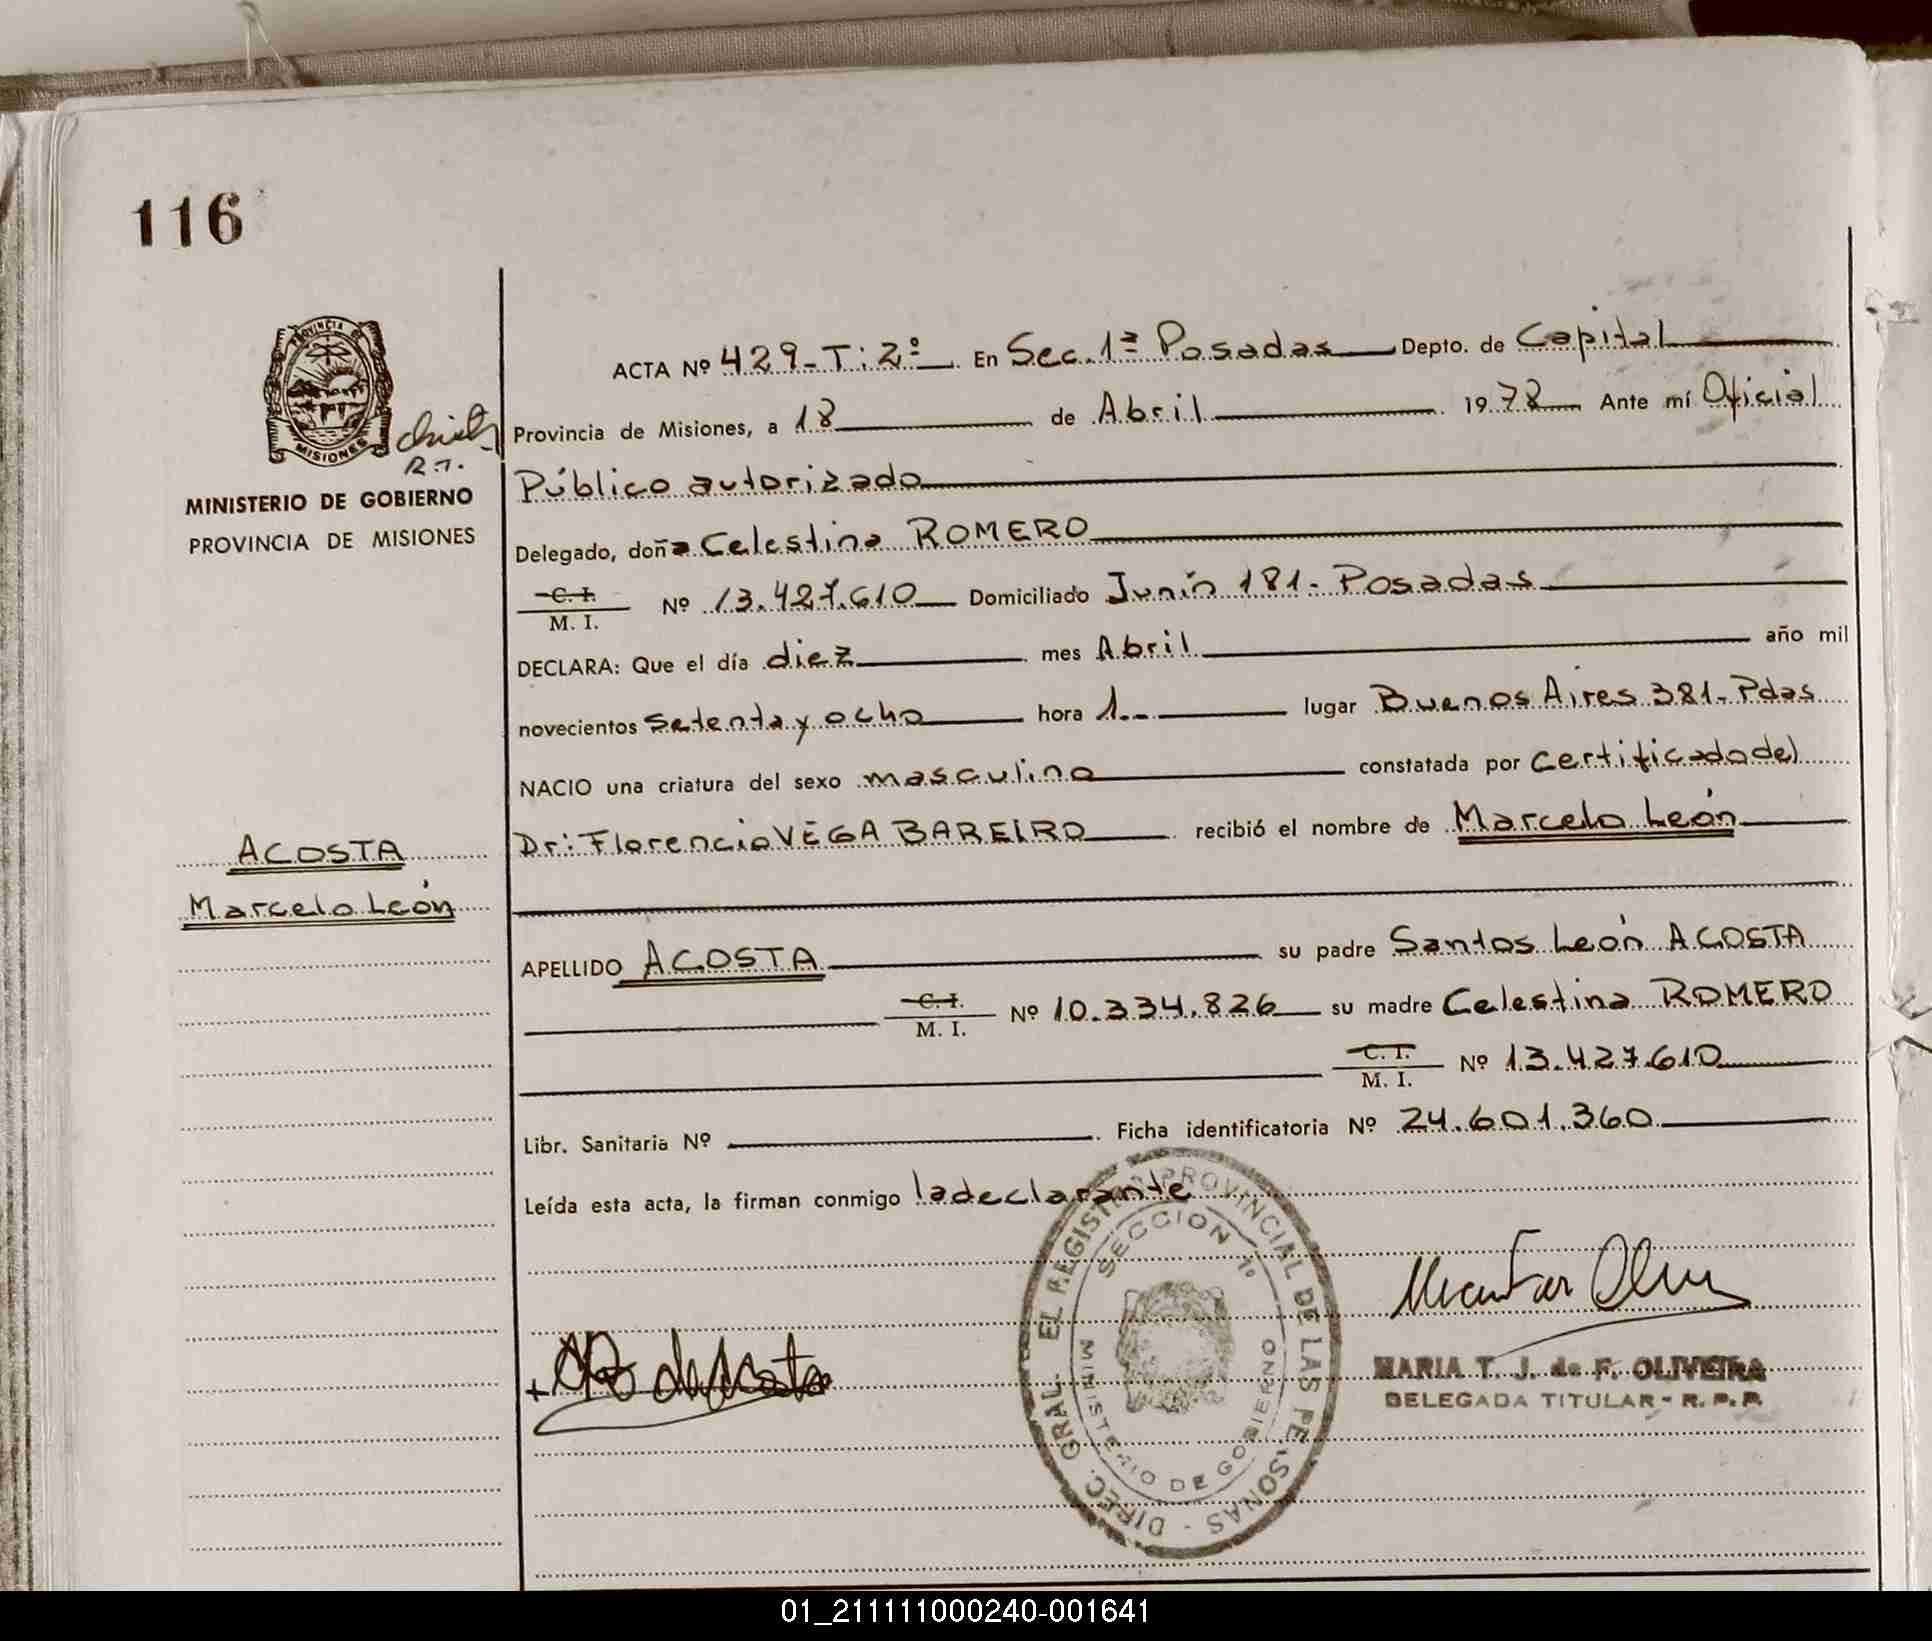 116
PROVINCIA DE
MISIONES
R.T.
MINISTERIO DE GOBIERNO
PROVINCIA DE MISIONES
ACTA Nº 429-T:2º En Sec. 1ª Posadas Depto. de Capital
Provincia de Misiones, a 18 de Abril 1978 Ante mí Oficial
Público autorizado
Delegado, doña Celestina ROMERO
C. I.
M. I. Nº 13.427.610 Domiciliado Junín 181- Posadas
DECLARA: Que el día diez mes Abril año mil
novecientos setenta y ocho hora 1.- lugar Buenos Aires 381- Pdas
NACIO una criatura del sexo masculino constatada por certificado del
Dr: Florencio VEGA BAREIRO recibió el nombre de Marcelo León
ACOSTA
Marcelo León
APELLIDO ACOSTA su padre Santos León ACOSTA
C. I.
M. I. Nº 10.334.826 su madre Celestina ROMERO
C. I.
M. I. Nº 13.427.610
Libr. Sanitaria Nº Ficha identificatoria Nº 24.601.360
Leída esta acta, la firman conmigo la declarante
DIREC. GRAL. EL REGISTRO PROVINCIAL DE LAS PERSONAS -
SECCION 1º
MINISTERIO DE GOBIERNO
MARIA T. J. de F. OLIVEIRA
DELEGADA TITULAR - R. P. P.
01_211111000240-001641